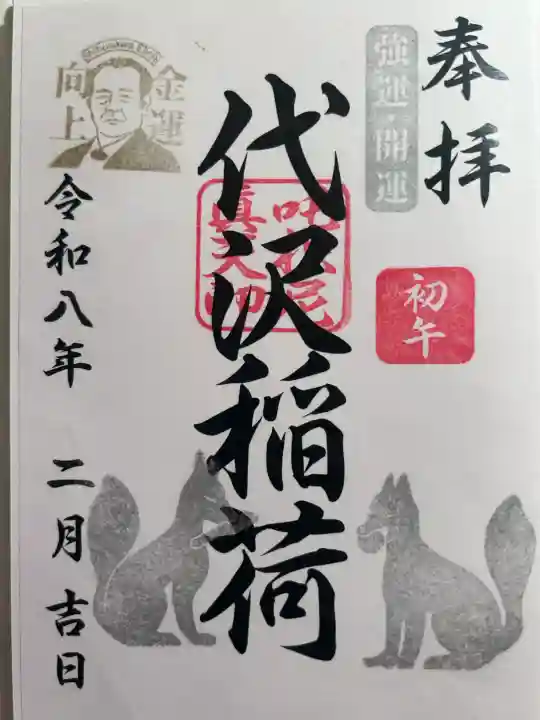 奉拝
強運・開運
初午
代沢稲荷
Shibusawa Eiichi
金運
向上
令和八年 二月吉日